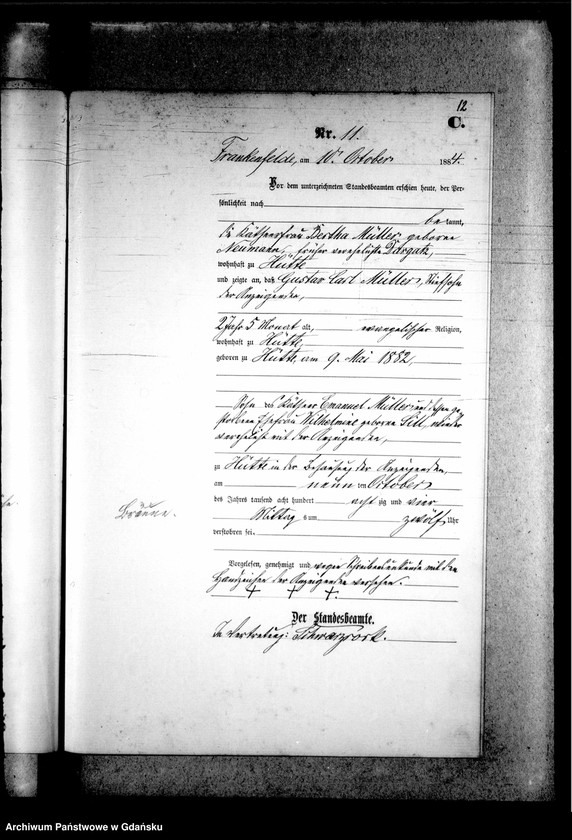 12
C.
Nr. 11.
Frankenfelde, am 10ten October 1884.
Vor dem unterzeichneten Standesbeamten erschien heute, der Per-
sönlichkeit nach
bekannt,
die Käthnerfrau Bertha Müller, geborene
Neumann, früher verehelichte Dargatz,
wohnhaft zu Hütte
und zeigte an, daß Gustav Carl Müller, Stiefsohn
der Anzeigenden,
2 Jahr 5 Monat alt, evangelischer Religion,
wohnhaft zu Hütte,
geboren zu Hütte, am 9. Mai 1882,
Sohn des Käthner Emanuel Müller und dessen ge-
storbene Ehefrau Wilhelmine geborene wieder
verehelicht mit der Anzeigenden,
zu Hütte in der Behausung der Anzeigenden,
am neun ten October
des Jahres tausend acht hundert acht zig und vier
Mittags um zwölf Uhr
verstorben sei.
Braune.
Vorgelesen, genehmigt und wegen Schreibensunkunde mit den
Handzeichen der Anzeigenden versehen.
+ + +.
Der Standesbeamte.
In Vertretung:
Archiwum Państwowe w Gdańsku